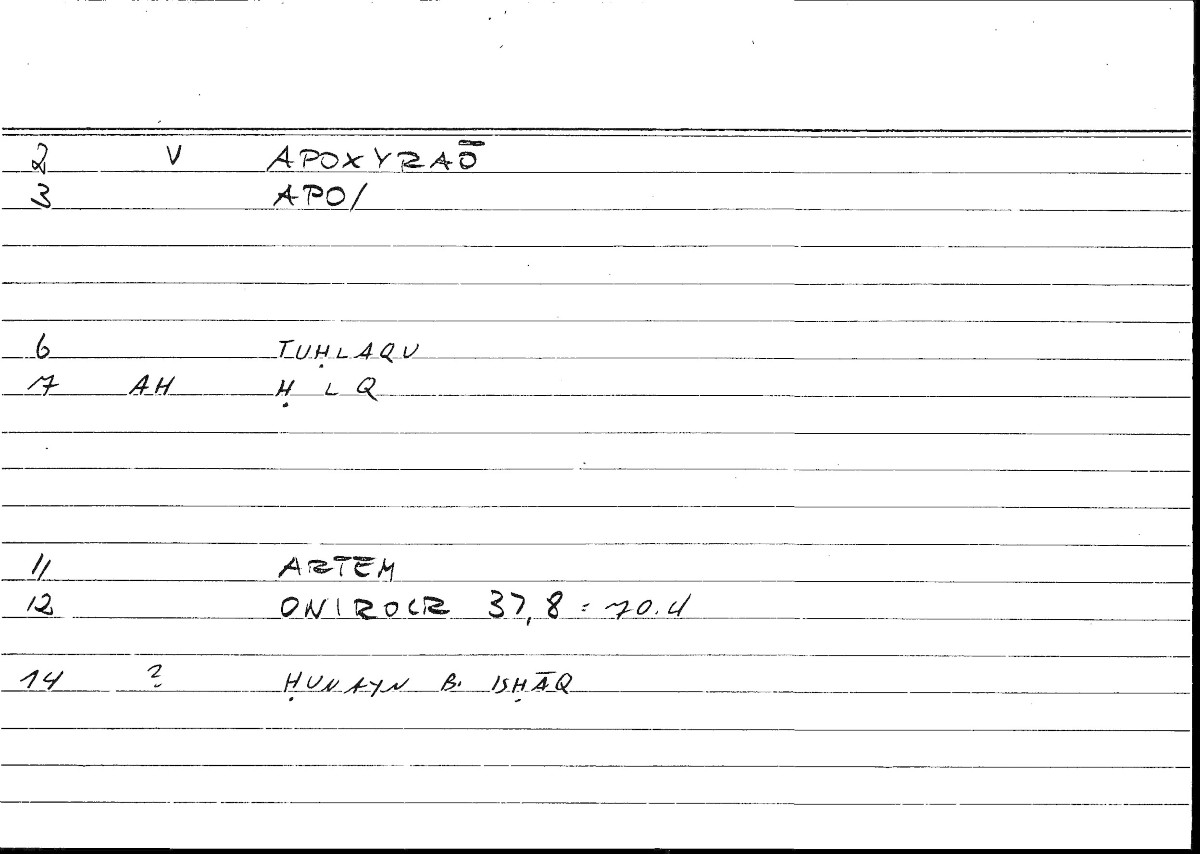 2 V APOXYRAŌ
3 APO/
6 TUḤLAQU
7 AH Ḥ L Q
11 ARTEM
12 ONIROCR 37,8 = 70.4
14 ? ḤUNAYN B. ISḤĀQ